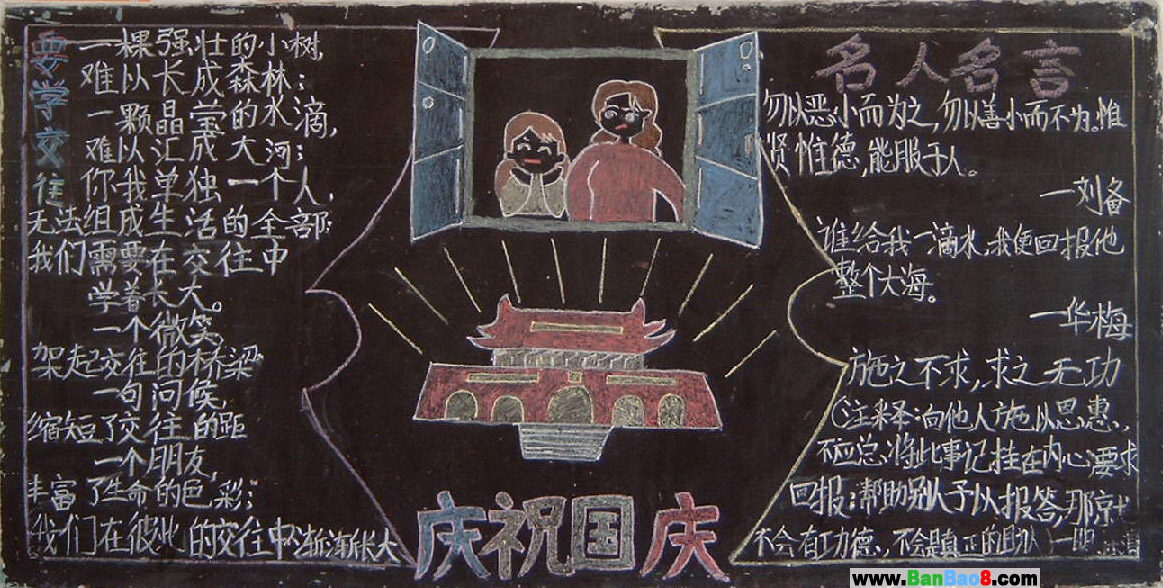 要学交往
一棵强壮的小树,
难以长成森林;
一颗晶莹的水滴,
难以汇成大河;
你我单独一个人,
无法组成生活的全部;
我们需要在交往中
学着长大。
一个微笑,
架起交往的桥梁
一句问候,
缩短了交往的距
一个朋友,
丰富了生命的色彩;
我们在彼此的交往中渐渐长大
庆祝国庆
名人名言
勿以恶小而为之,勿以善小而不为。惟
贤惟德,能服于人。
一刘备
谁给我一滴水,我便回报他
整个大海。
一华梅
施之不求,求之无功
(注释:向他人施以恩惠,
不应总将此事记挂在内心要求
回报;帮助别人予以报答,那
不会有功德,不会是真正的
www.BanBao8.com